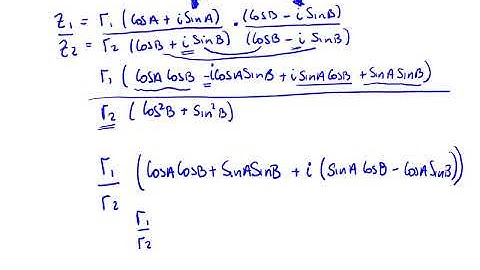 Z₁ = r₁ (CosA + i SinA) . (CosB - i SinB)
Z₂ = r₂ (CosB + i SinB) (CosB - i SinB)
r₁ ( CosA CosB - i CosA SinB + i SinA CosB + SinA SinB)
r₂ ( Cos²B + Sin²B)
r₁ ( CosA CosB + SinA SinB + i ( SinA CosB - CosA SinB))
r₂
r₁
r₂